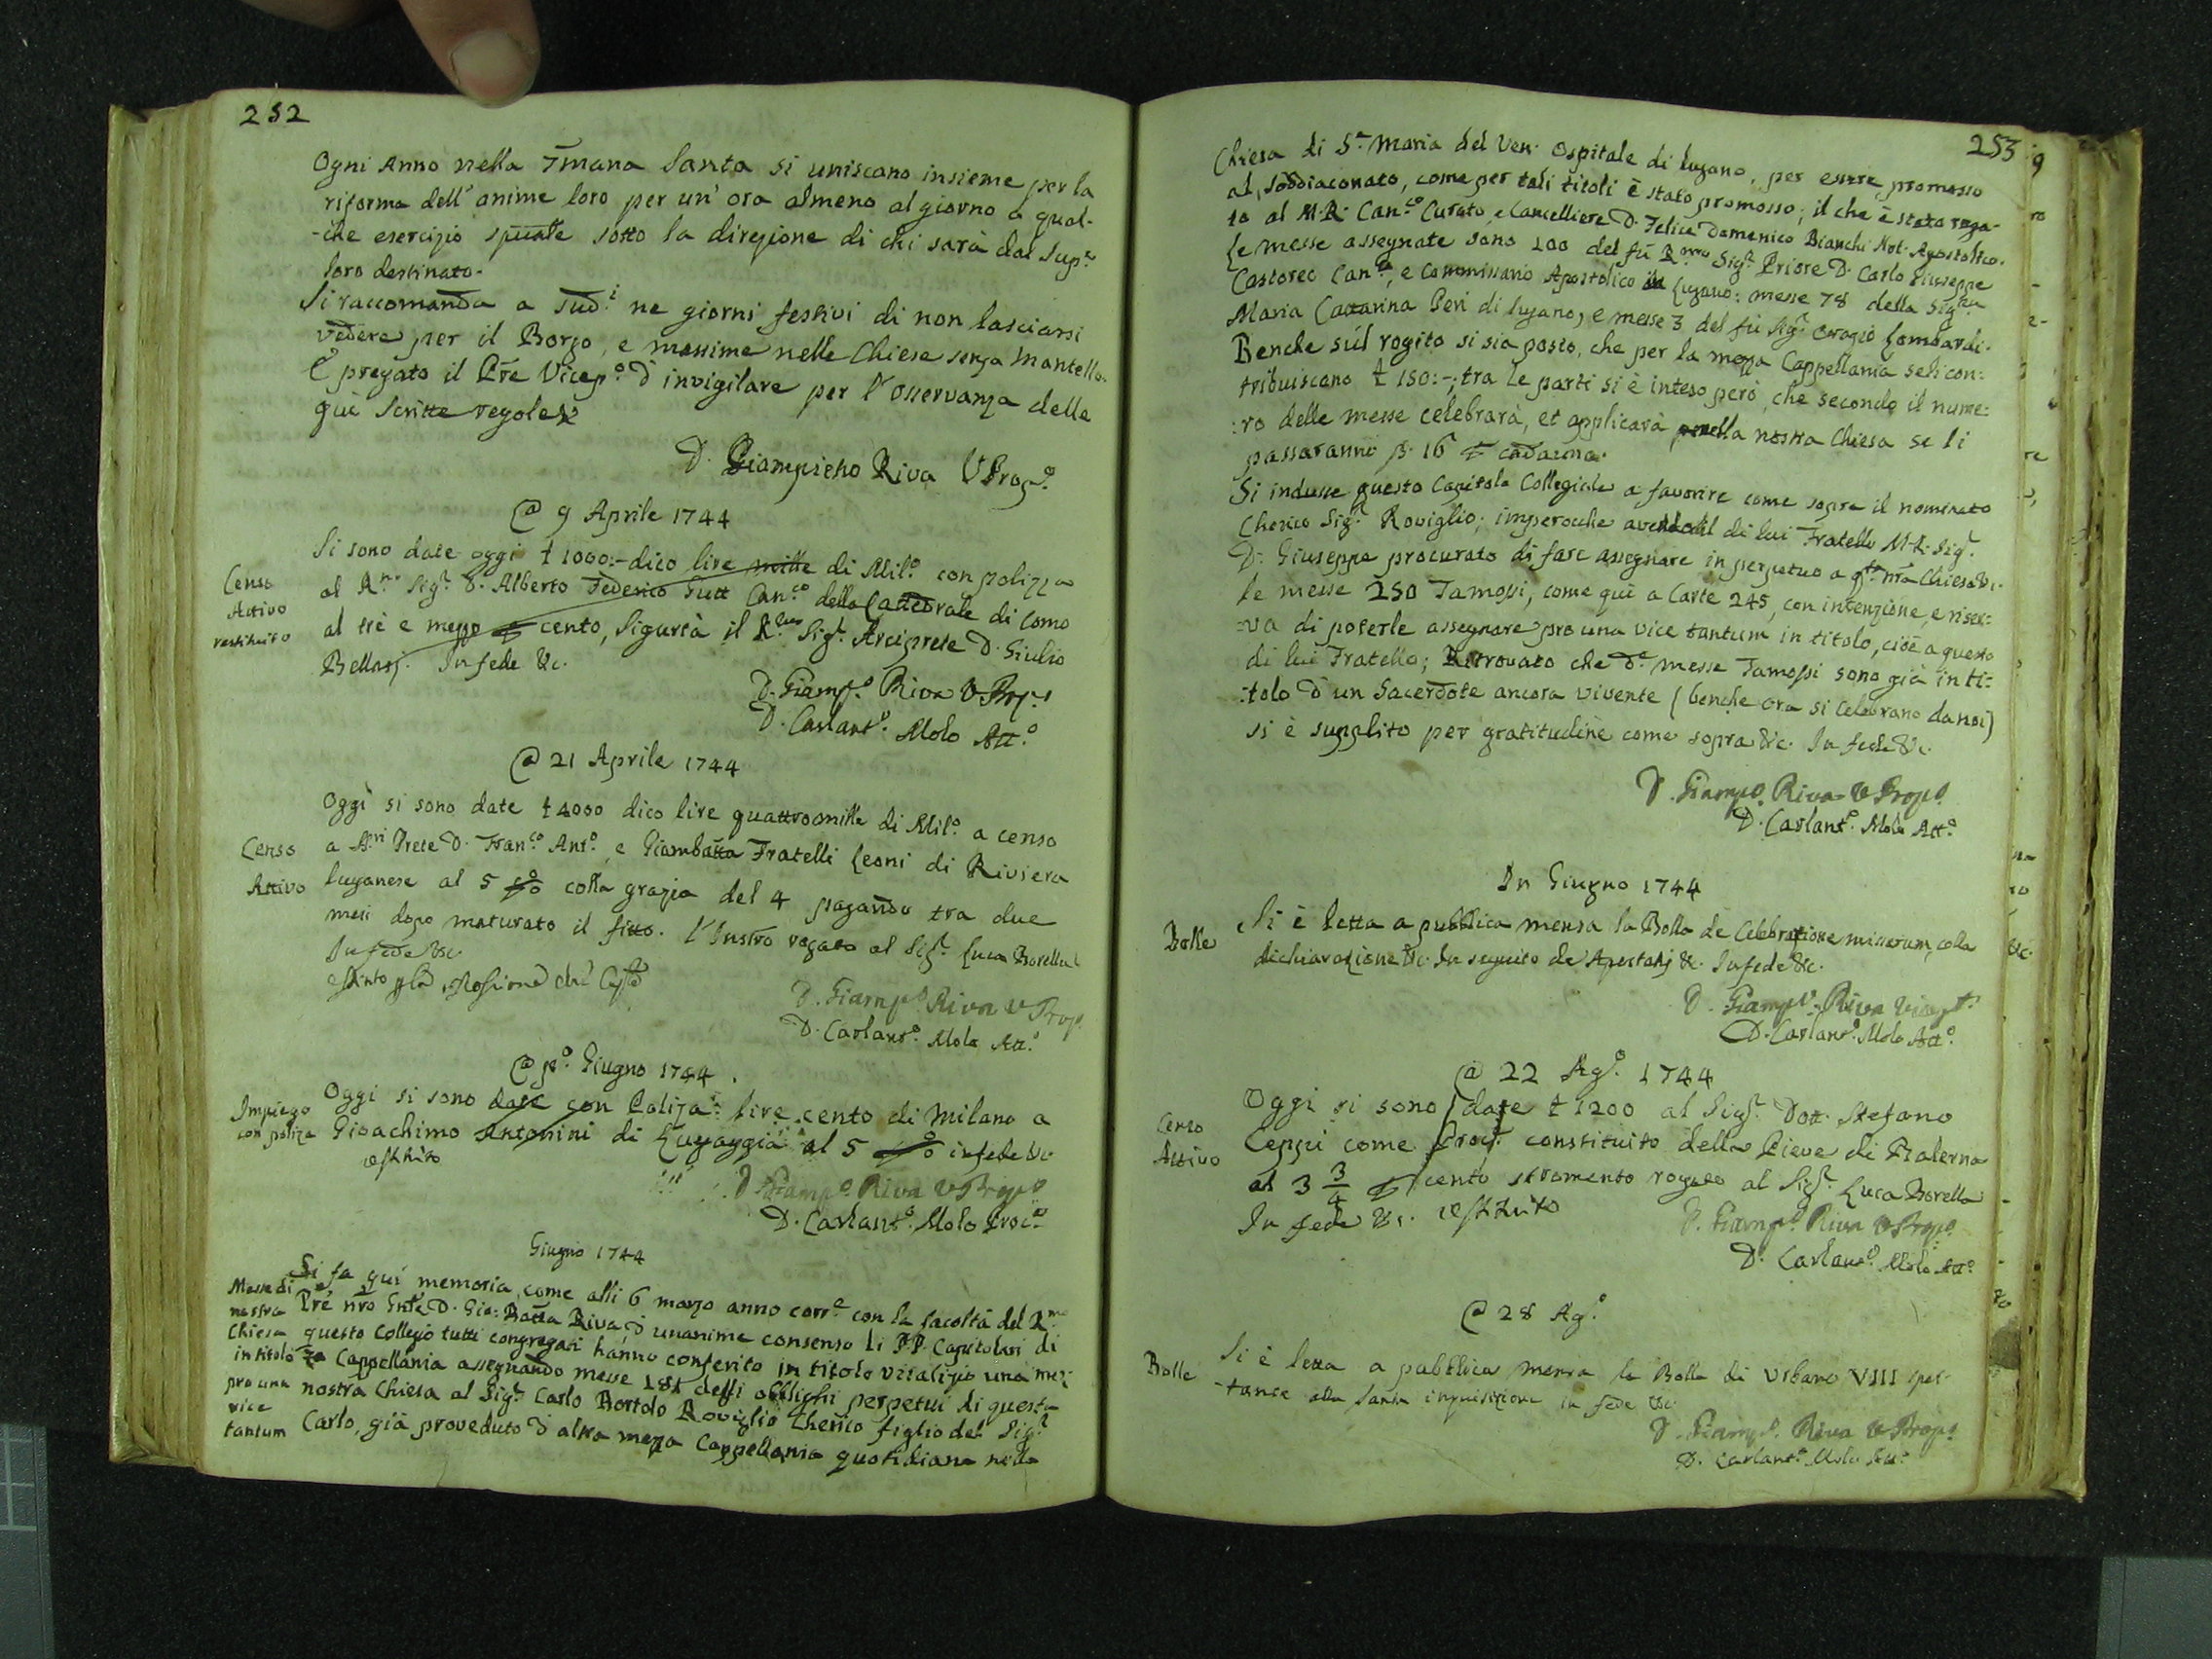 252
Ogni Anno nella 7mana Santa si uniscano insieme per la
riforma dell' anime loro per un' ora almeno al giorno a qual-
-che esercizio spuale sotto la direzione di chi sarà dal Supre
loro destinato.
Si raccomanda a sudi ne giorni festivi di non lasciarsi
vedere per il Borgo, e massime nelle Chiese senza mantello.
È pregato il Pre Vicepo d' invigilare per l' osservanza delle
quì scritte regole
D. Giampietro Riva VPropo
@ 9 Aprile 1744
Censo
Attivo
restituito
Si sono date oggi £ 1000:- dico lire mille di Milo con polizza
al Rmo Sigr D. Alberto Federico Canco della Cattedrale di Como
al trè e mezzo cento, Sigurtà il Sigr Arciprete D. Giulio
Bellasj. In fede &c.
D. Giampo Riva VPropo
D. Carlanto Molo Atto
@ 21 Aprile 1744
Censo
Attivo
Oggi si sono date £ 4000 dico lire quattromille di Milo a censo
a Sri Prete D. Franco Anto, e Giambatta Fratelli Leoni di Riviera
luganese al 5 colla grazia del 4 pagando tra due
mesi dopo maturato il fitto. l'Instro rogato al Sigr Luca Borella
In fede &c.
D. Giampo Riva VPropo
D. Carlanto Molo Atto
@ po Giugno 1744
Impiego
con poliza
restituito
Oggi si sono date con Poliza lire cento di Milano a
Gioachimo Antonini di Lugaggia al 5 in fede &c
D. Giampo Riva VPropo
D. Carlanto Molo Proc
Giugno 1744
Messe di
nostra
Chiesa
in titolo
pro una
vice
tantum
Si fa quì memoria, come alli 6 marzo anno corre con la facoltà del Rmo
Pre nro D. Gio: Batta Riva, d' unanime consenso li PP. Capitolari di
questo Collegio tutti congregati hanno conferito in titolo vitalizio una mez
za Cappellania assegnando messe 181 degli obblighi perpetui di questa
nostra Chiesa al Sigr Carlo Bortolo Roviglio Cherico figlio del Sigr
Carlo, già proveduto d' altra mezza Cappellania quotidiana nella
253
Chiesa di Sa Maria del Ven. Ospitale di lugano, per essere promosso
al soddiaconato, come per tali titoli è stato promosso; il che è stato roga-
to al M.R. Canco Curato, e Cancelliere D. Felice Domenico Bianchi Not. Apostolico.
Le messe assegnate sono 100 del fù Rmo Sigr Priore D. Carlo Giuseppe
Castoreo Canco, e Commissario Apostolico in Lugano: messe 78 della Sigra
Maria Cattarina Peri di lugano, e messe 3 del fù Sigr Orazio Lombardi.
Benche sul rogito si sia posto, che per la mezza Cappellania seli con:
tribuiscano £ 150:-; tra le parti si è inteso però, che secondo il nume:
:ro delle messe celebrarà, et applicarà nella nostra Chiesa se li
passaranno ß 16 cadauna.
Si indusse questo Capitolo Collegiale a favorire come sopra il nominato
Cherico Sigr Roviglio; imperocche avendo il di lui Fratello M.R. Sigr
D. Giuseppe procurato di fare assegnare in perpetuo a qta nra Chiesa
le messe 250 Tamossi, come quì a Carte 245, con intenzione, e riser:
:va di poterle assegnare pro una vice tantum in titolo, cioè a questo
di lui Fratello; Ritrovato che de messe Tamossi sono già in ti:
:tolo d' un Sacerdote ancora vivente (benche ora si celebrano da noi)
si è supplito per gratitudine come sopra &c. In fede &c.
D. Giampo Riva VPropo
D. Carlanto Molo Atto
In Giugno 1744
Bolle
Si è letta a pubblica mensa la Bolla de Celebratione missarum, colla
dichiarazione &c. In seguito de Apostatis &c. In fede &c.
D. Giampo Riva Vicepo
D. Carlanto Molo Atto
@ 22 Ago 1744
Censo
Attivo
Oggi si sono date £ 1200 al Sigr Dott. Stefano
Ceppi come Procr constituito della Pieve di Balerna
al 3 3/4 cento stromento rogato al Sigr Luca Borella
In fede &c. restituito
D. Giampo Riva VPropo
D. Carlanto Molo Atto
@ 28 Ago
Bolle
Si è letta a pubblica mensa la Bolla di Urbano VIII spet-
tante alla Santa inquisizione in fede &c
D. Giampo Riva VPropo
D. Carlanto Molo Atto